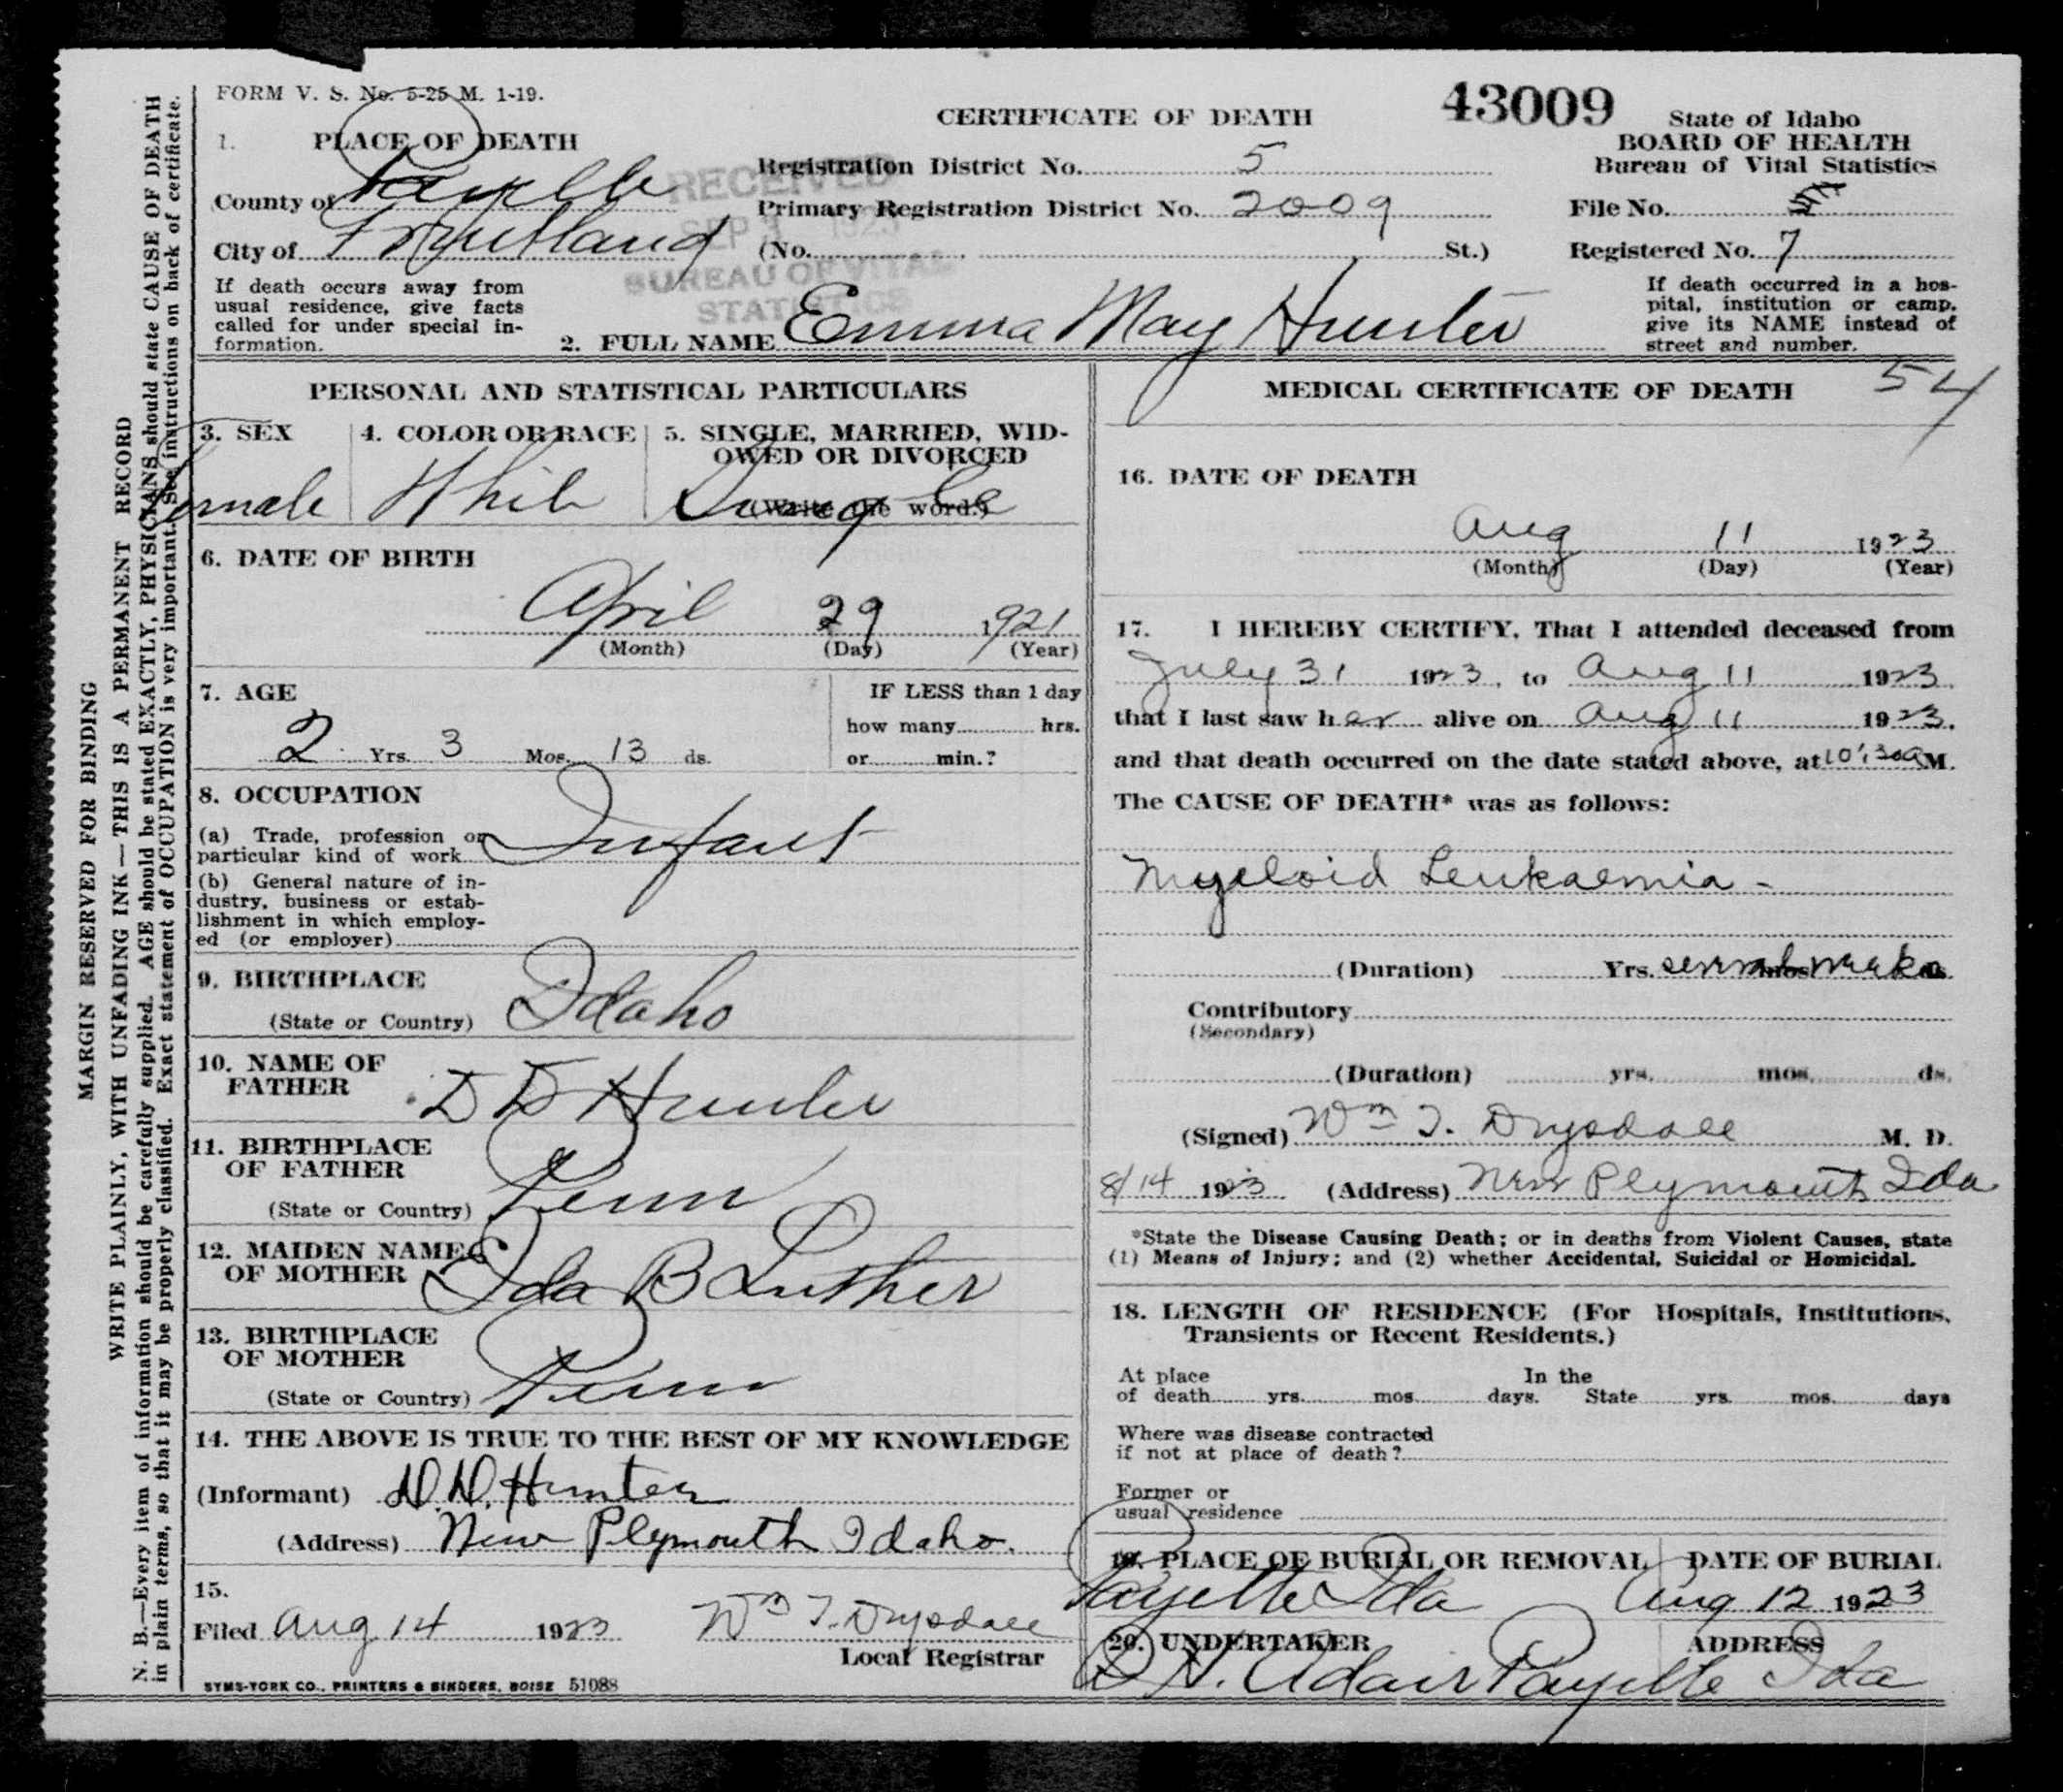 FORM V. S. No. 5-25 M. 1-19.
CERTIFICATE OF DEATH
43009
State of Idaho
BOARD OF HEALTH
Bureau of Vital Statistics
1. PLACE OF DEATH
County of Payette
City of Fruitland
RECEIVED
SEP 1923
BUREAU OF VITAL
STATISTICS
Registration District No. 5
Primary Registration District No. 2009
(No. St.)
File No.
Registered No. 7
If death occurs away from
usual residence, give facts
called for under special in-
formation.
2. FULL NAME Emma May Hunter
If death occurred in a hos-
pital, institution or camp,
give its NAME instead of
street and number.
PERSONAL AND STATISTICAL PARTICULARS
3. SEX
Female
4. COLOR OR RACE
White
5. SINGLE, MARRIED, WID-
OWED OR DIVORCED
(Write the word.)
Single
6. DATE OF BIRTH
April 29 1921
(Month) (Day) (Year)
7. AGE
2 Yrs. 3 Mos. 13 ds.
IF LESS than 1 day
how many hrs.
or min.?
8. OCCUPATION
(a) Trade, profession or
particular kind of work Infant
(b) General nature of in-
dustry, business or estab-
lishment in which employ-
ed (or employer)
9. BIRTHPLACE
(State or Country) Idaho
10. NAME OF
FATHER D D Hunter
11. BIRTHPLACE
OF FATHER
(State or Country) Penn
12. MAIDEN NAME
OF MOTHER Ida B Luther
13. BIRTHPLACE
OF MOTHER
(State or Country) Penn
14. THE ABOVE IS TRUE TO THE BEST OF MY KNOWLEDGE
(Informant) D.D. Hunter
(Address) New Plymouth Idaho.
15.
Filed Aug 14 1923 Wm T. Drysdale
Local Registrar
SYMS-YORK CO., PRINTERS & BINDERS, BOISE 51088
MEDICAL CERTIFICATE OF DEATH
54
16. DATE OF DEATH
Aug 11 1923
(Month) (Day) (Year)
17. I HEREBY CERTIFY, That I attended deceased from
July 31 1923, to Aug 11 1923
that I last saw her alive on Aug 11 1923.
and that death occurred on the date stated above, at 10:30a M.
The CAUSE OF DEATH* was as follows:
Myeloid Leukaemia -
(Duration) Yrs. several mos weeks ds.
Contributory
(Secondary)
(Duration) yrs. mos. ds.
(Signed) Wm T. Drysdale M. D.
8/14 1923 (Address) New Plymouth Ida
*State the Disease Causing Death; or in deaths from Violent Causes, state
(1) Means of Injury; and (2) whether Accidental, Suicidal or Homicidal.
18. LENGTH OF RESIDENCE (For Hospitals, Institutions,
Transients or Recent Residents.)
At place In the
of death yrs. mos. days. State yrs. mos. days
Where was disease contracted
if not at place of death?
Former or
usual residence
19. PLACE OF BURIAL OR REMOVAL
Payette Ida
DATE OF BURIAL
Aug 12 1923
20. UNDERTAKER ADDRESS
N. Adair Payette Ida
MARGIN RESERVED FOR BINDING
WRITE PLAINLY, WITH UNFADING INK—THIS IS A PERMANENT RECORD
N. B.—Every item of information should be carefully supplied. AGE should be stated EXACTLY, PHYSICIANS should state CAUSE OF DEATH
in plain terms, so that it may be properly classified. Exact statement of OCCUPATION is very important. See instructions on back of certificate.